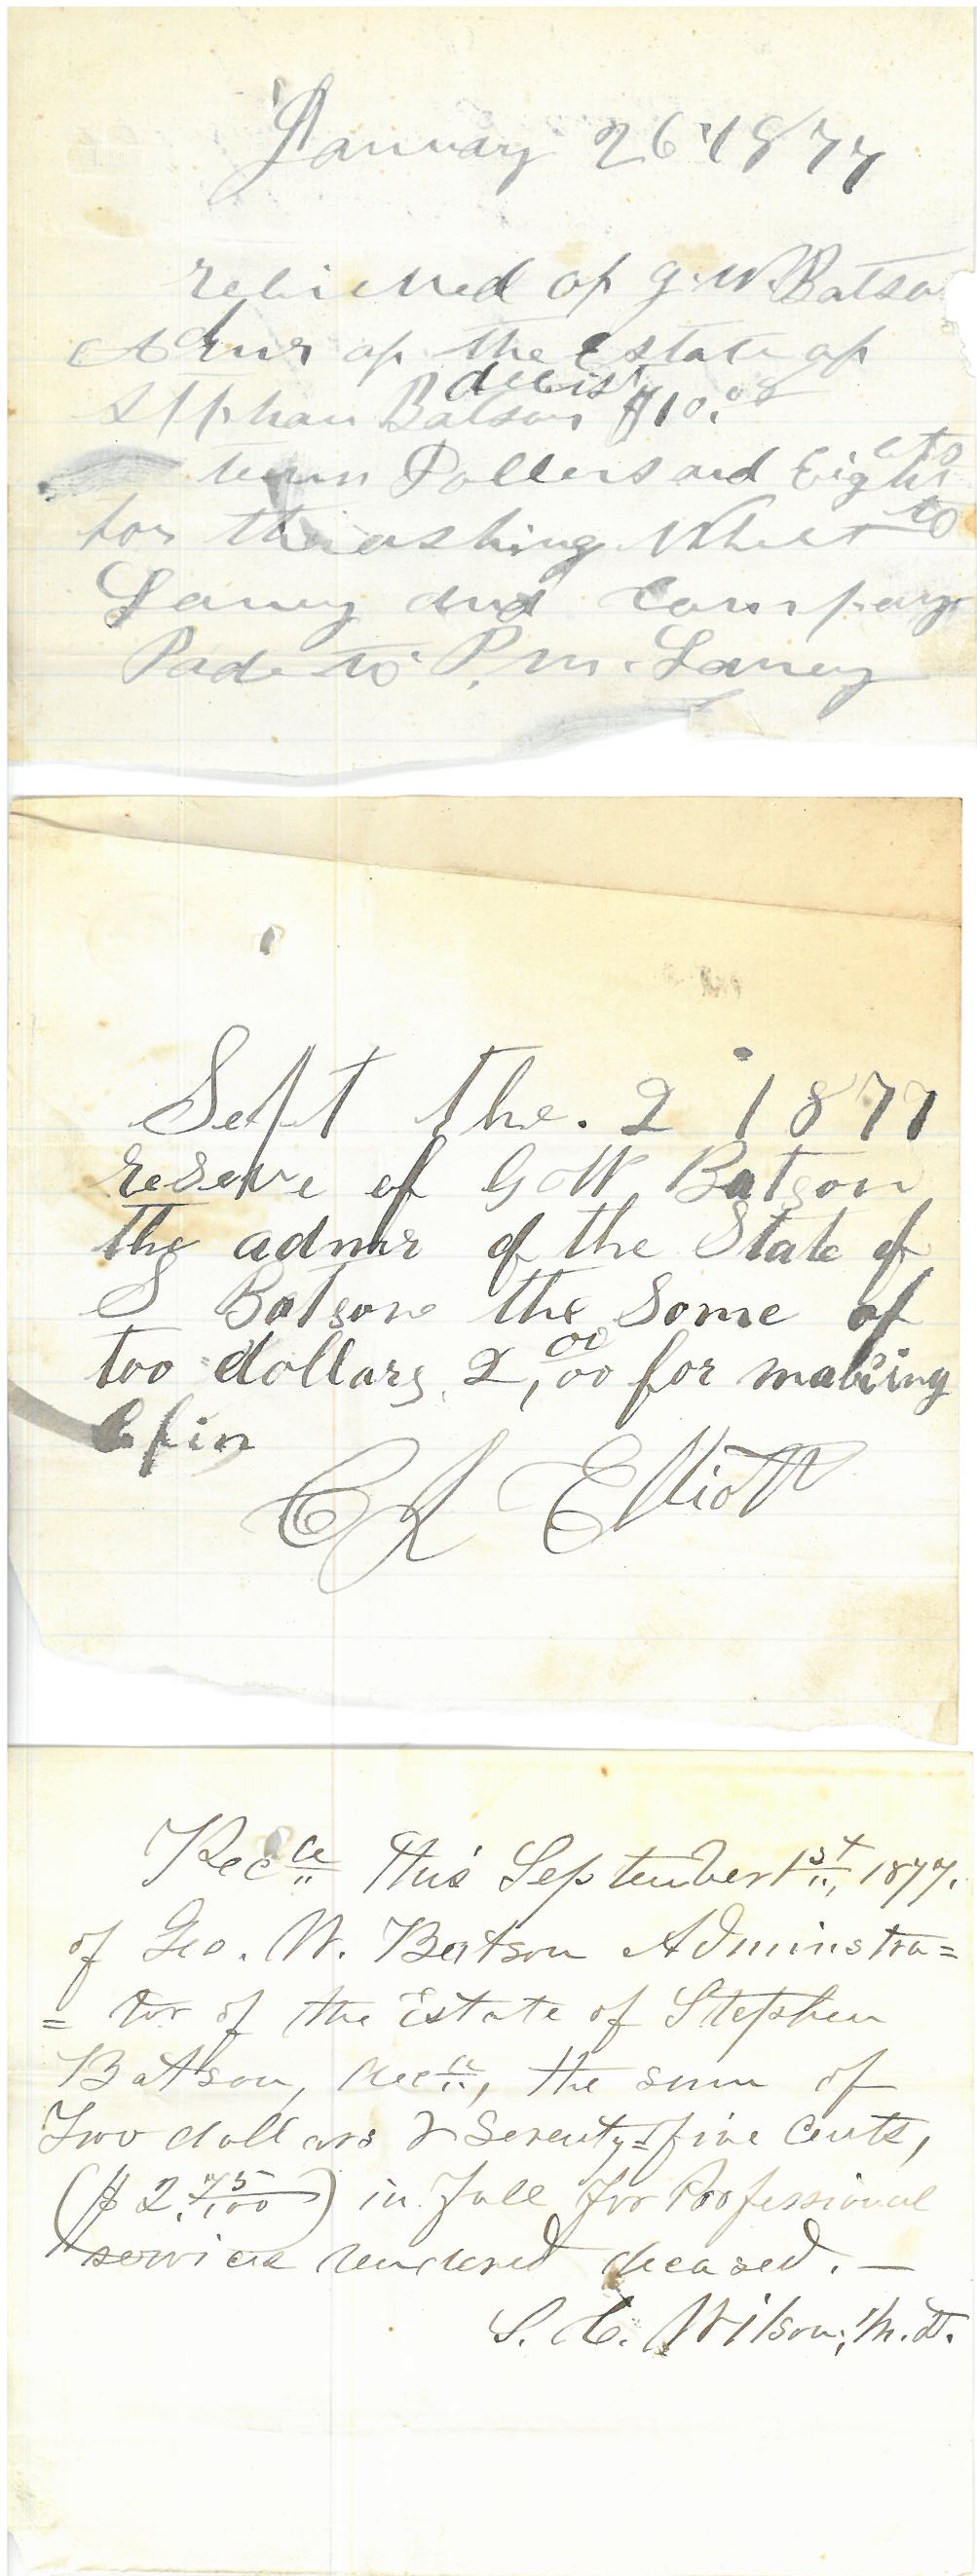 January 26 1877
recieved of G. W. Batso
Admr of the Estate of
decist
Stphan Batson $10.08
tenn Dollers and Eight cts
for thrashing Wheet to
Laney and Company
Pade to P. M. Laney
Sept the. 2 1877
reserve of G W Batson
the admr of the State of
S Batson the Some of
too dollars 2,00/00 for making
Cofin
C L Elliott
Rec'd this September 1st, 1877.
of Geo. W. Batson Adminstra=
= tor of the Estate of Stephen
Batson, dec'd, the sum of
Two dollars & Seventy=five Cents,
($2.75/100) in full for Professional
services rendered deceased. —
S. C. Wilson, M.D.